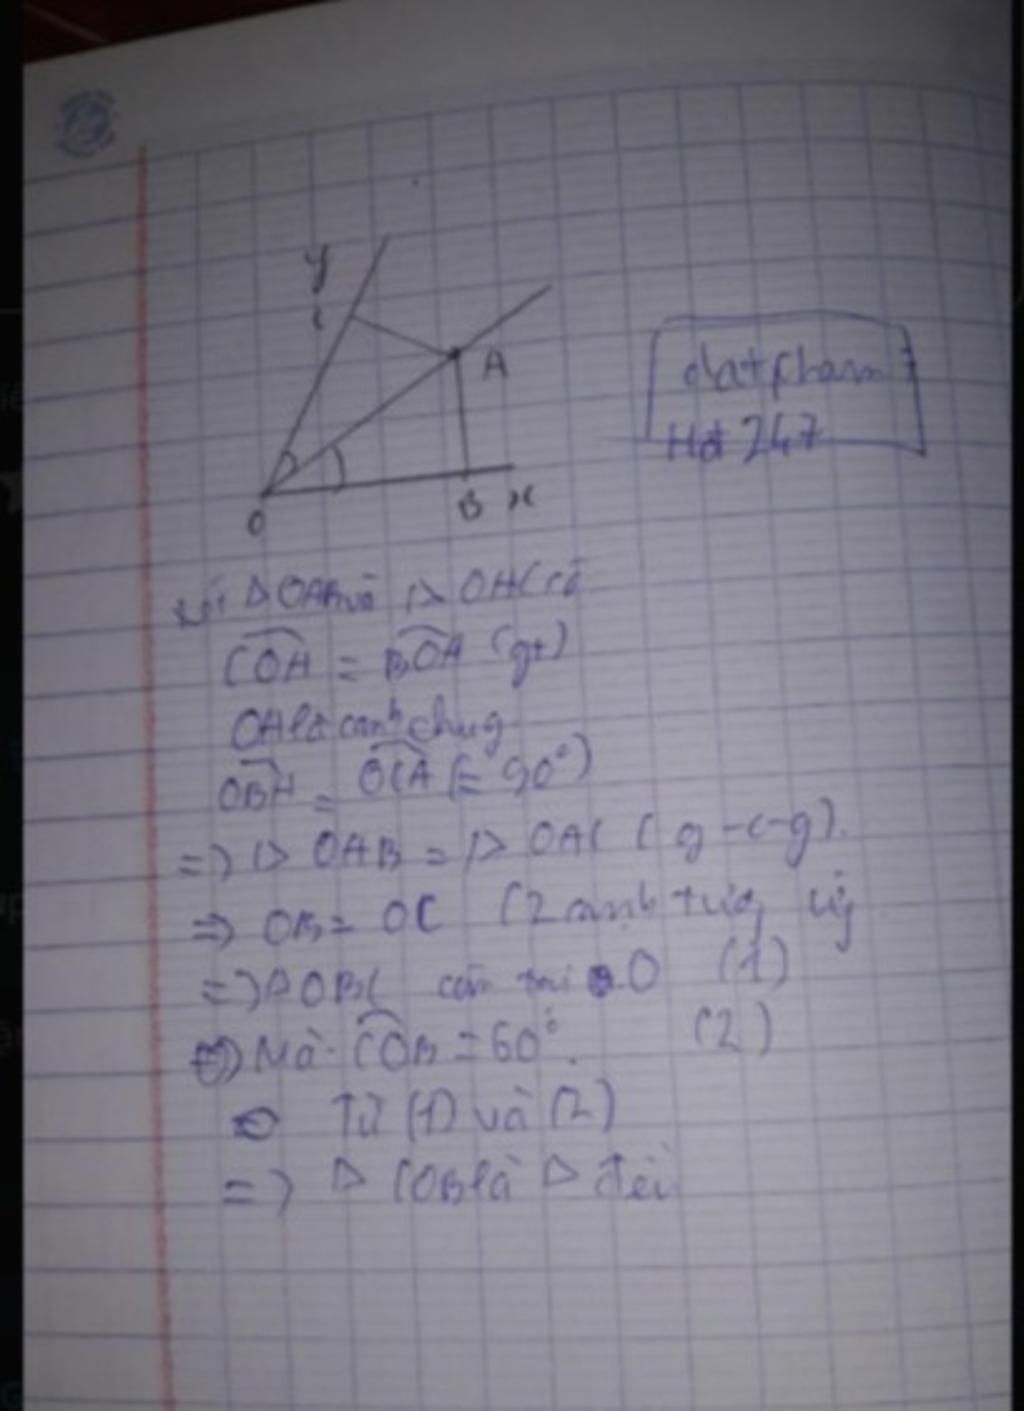 y
C
A
O
B x
datpham
Hd 247
Xét Δ OAB và Δ OAC có
COA = BOA (gt)
OA là cạnh chug
OBA = OCA (= 90°)
=> Δ OAB = Δ OAC ( g-c-g).
=> OB = OC (2 cạnh tươg ứg
=> Δ OBC cân tại O (1)
Mà COB = 60°. (2)
Từ (1) và (2)
=> Δ COB là Δ đều